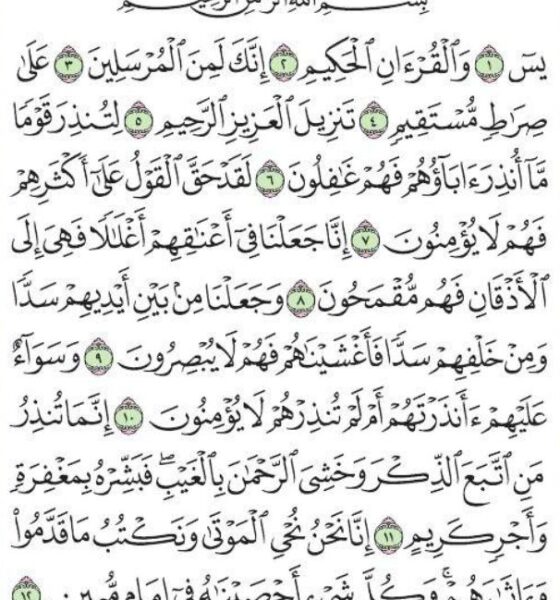 بِسْمِ اللَّهِ الرَّحْمَٰنِ الرَّحِيمِ
يسٓ ١ وَٱلْقُرْءَانِ ٱلْحَكِيمِ ٢ إِنَّكَ لَمِنَ ٱلْمُرْسَلِينَ ٣ عَلَىٰ
صِرَٰطٍ مُّسْتَقِيمٍ ٤ تَنزِيلَ ٱلْعَزِيزِ ٱلرَّحِيمِ ٥ لِتُنذِرَ قَوْمًا
مَّآ أُنذِرَ ءَابَآؤُهُمْ فَهُمْ غَٰفِلُونَ ٦ لَقَدْ حَقَّ ٱلْقَوْلُ عَلَىٰٓ أَكْثَرِهِمْ
فَهُمْ لَا يُؤْمِنُونَ ٧ إِنَّا جَعَلْنَا فِىٓ أَعْنَٰقِهِمْ أَغْلَٰلًا فَهِىَ إِلَى
ٱلْأَذْقَانِ فَهُم مُّقْمَحُونَ ٨ وَجَعَلْنَا مِنۢ بَيْنِ أَيْدِيهِمْ سَدًّا
وَمِنْ خَلْفِهِمْ سَدًّا فَأَغْشَيْنَٰهُمْ فَهُمْ لَا يُبْصِرُونَ ٩ وَسَوَآءٌ
عَلَيْهِمْ ءَأَنذَرْتَهُمْ أَمْ لَمْ تُنذِرْهُمْ لَا يُؤْمِنُونَ ١٠ إِنَّمَا تُنذِرُ
مَنِ ٱتَّبَعَ ٱلذِّكْرَ وَخَشِىَ ٱلرَّحْمَٰنَ بِٱلْغَيْبِ ۖ فَبَشِّرْهُ بِمَغْفِرَةٍ
وَأَجْرٍ كَرِيمٍ ١١ إِنَّا نَحْنُ نُحْىِ ٱلْمَوْتَىٰ وَنَكْتُبُ مَا قَدَّمُوا۟
وَءَاثَٰرَهُمْ ۚ وَكُلَّ شَىْءٍ أَحْصَيْنَٰهُ فِىٓ إِمَامٍ مُّبِينٍ ١٢